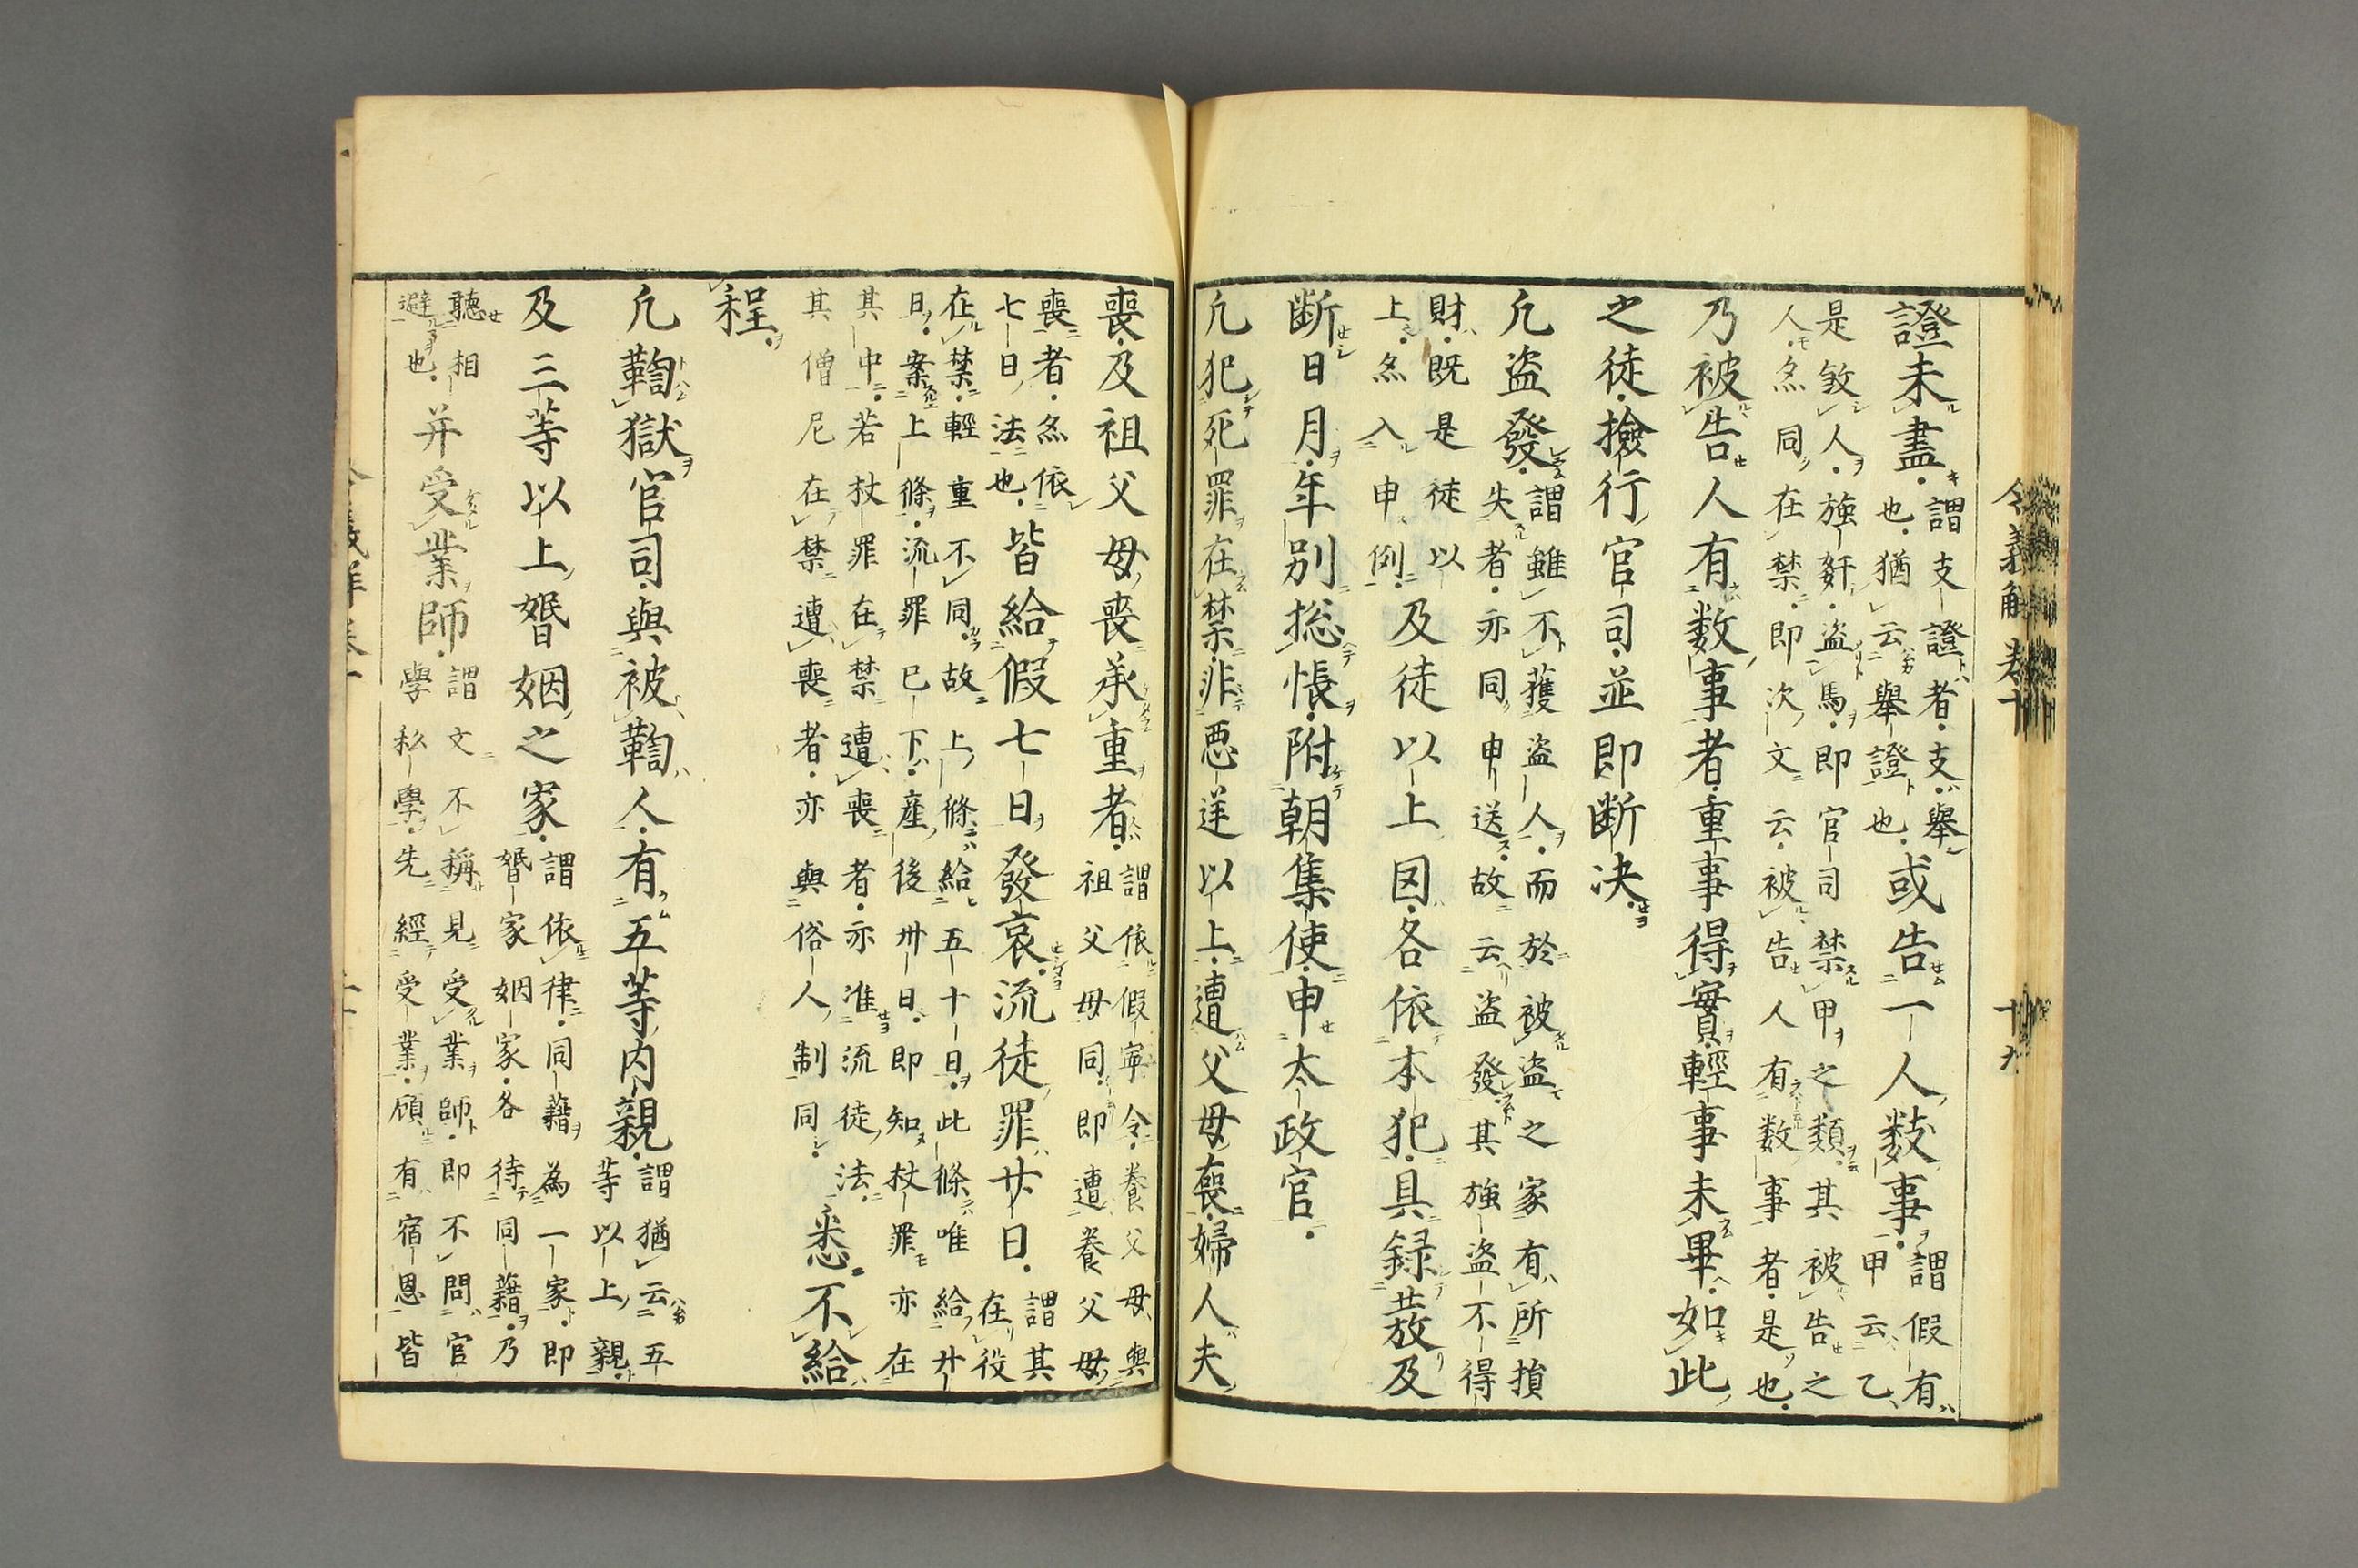 證未盡謂支證者支舉
也猶云舉證也或告一人數事謂假有
甲云乙
是敓人強姧盜馬即官司禁甲之類其被告之
人㷊同在禁即次文云被告人有数事者是也
乃被告人有数事者重事得實輕事未畢如此
之徒撿行官司並即断决
凢盜發謂雖不獲盜人而於被盜之家有所損
失者亦同申送故云盜發其強盜不得
財既是徒以
上㷊入申例及徒以上囙各依本犯具録𤼲及
断日月年別揔帳附朝集使申太政官
凢犯死罪在禁非悪逆以上遭父母喪婦人夫
喪及祖父母喪承重者謂依假寧令養父母與
祖父母同即遭養父母
喪者㷊依
七日法也皆給假七日發哀流徒罪廿日謂其
在役
在禁輕重不同故上條給五十日此條唯給廾
日案上條流罪已下產後卅日即知杖罪亦在
其中若杖罪在禁遭喪者亦准流徒法
其僧尼在禁遭喪者亦與俗人制同悉不給
程
凢鞫獄官司與被鞫人有五等内親謂猶云五
等以上親
及三等以上婚姻之家謂依律同籍為一家即
婚家姻家各待同籍乃
聽相
避也并受業師謂文不稱見受業師即不問官
學私學先經受業頗有宿恩皆
令義解 卷十 十九